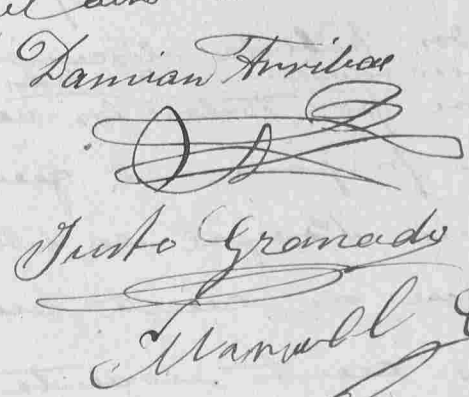 Damian Arribas
Justo Granado
Manuel